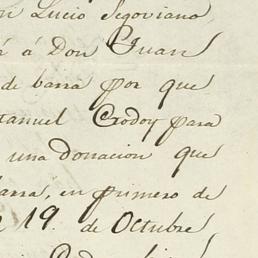 Lucio Segoviano
á Don Juan
de barra por que
Manuel Godoy para
una donacion que
barra, en primero de
19. de Octubre